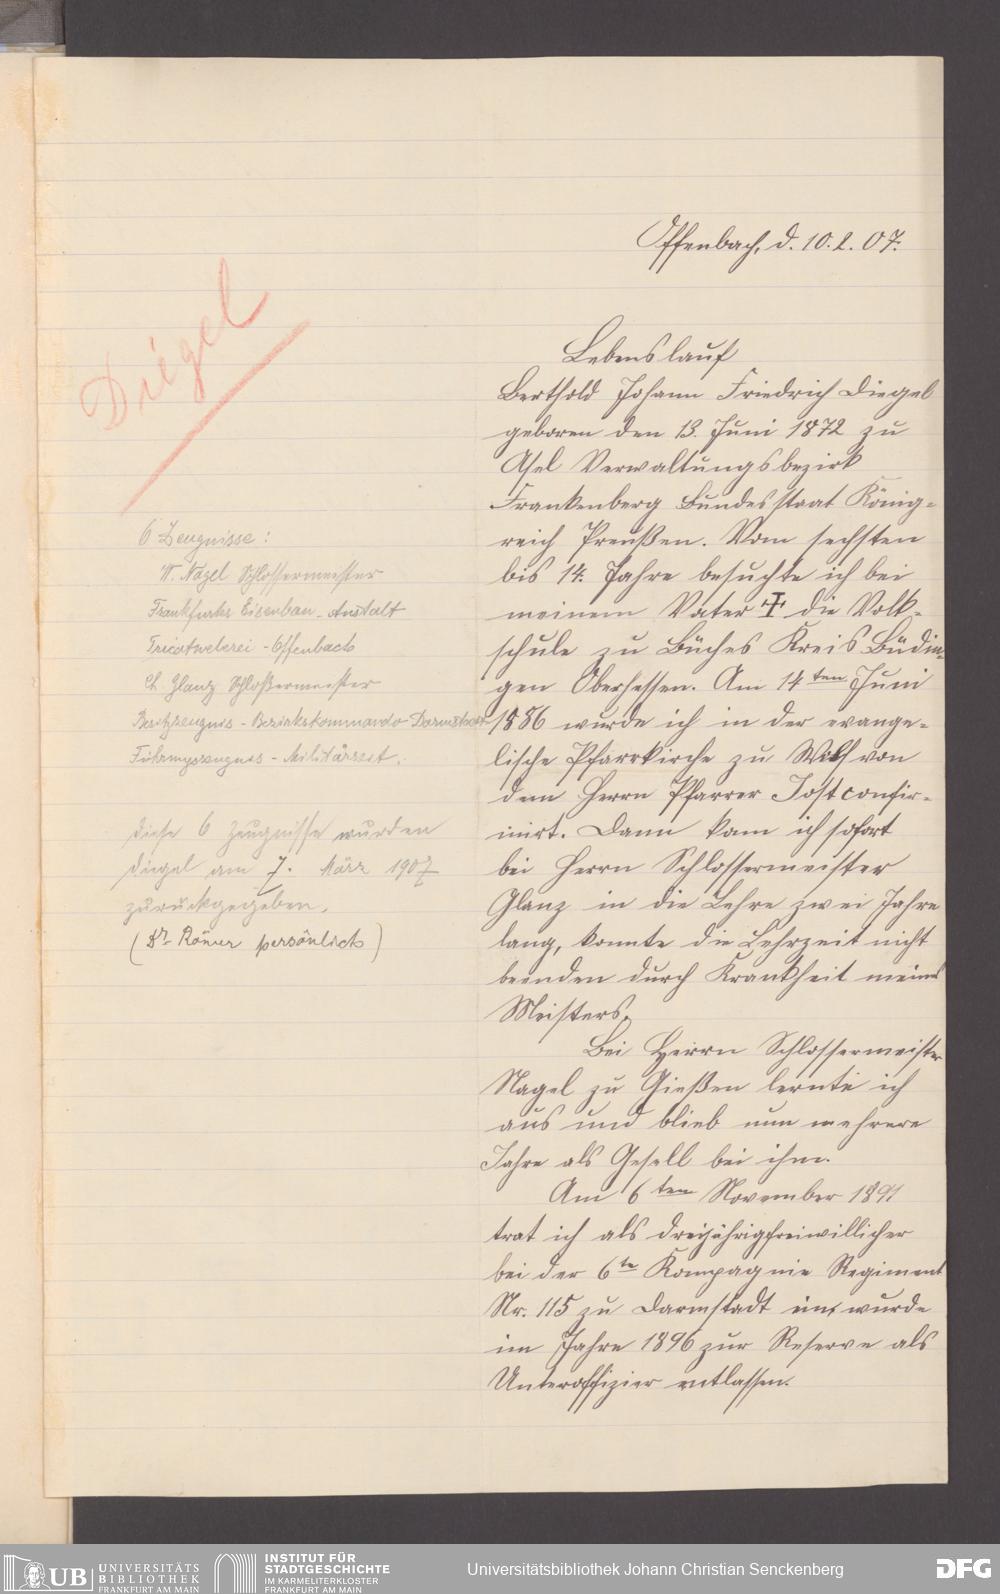 Offenbach, d. 10. 2. 07.
Diegel
Lebenslauf
Berthold Johann Friedrich Diegel
geboren den 13. Juni 1872 zu
Asel Verwaltungsbezirk
Frankenberg Bundesstaat König-
reich Preußen. Vom sechsten
bis 14. Jahre besuchte ich bei
meinem Vater ✝ die Volk-
schule zu Büches Kreis Büdin-
gen Oberhessen. Am 14ten Juni
1886 wurde ich in der evange-
lische Pfarrkirche zu Wolf von
dem Herrn Pfarrer Jost confir-
mirt. Dann kam ich sofort
bei Herrn Schlossermeister
Glanz in die Lehre zwei Jahre
lang, konnte die Lehrzeit nicht
beenden durch Krankheit meines
Meisters.
Bei Herrn Schlossermeister
Nagel zu Gießen lernte ich
aus und blieb nun mehrere
Jahre als Gesell bei ihm.
Am 6ten November 1891
trat ich als dreijährigfreiwillicher
bei der 6te Kompagnie Regiment
Nr. 115 zu Darmstadt ein, wurde
im Jahre 1896 zur Reserve als
Unteroffizier entlassen.
6 Zeugnisse:
W. Nagel Schlossermeister
Frankfurter Eisenbau-Anstalt
Tricotweberei - Offenbach
Ch. Glanz Schloßermeister
Besitzzeugnis - Bezirkskommando-Darmstadt
Führungszeugnis - Militärzeit.
Diese 6 Zeugnisse wurden
Diegel am 7. März 1907
zurückgegeben.
(Dr. Römer persönlich)
UB UNIVERSITÄTS
BIBLIOTHEK
FRANKFURT AM MAIN
INSTITUT FÜR
STADTGESCHICHTE
IM KARMELITERKLOSTER
FRANKFURT AM MAIN
Universitätsbibliothek Johann Christian Senckenberg
DFG